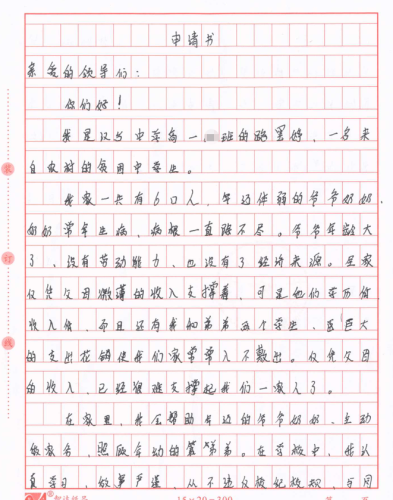 申请书
亲爱的领导们：
你们好！
我是汉与中学高一、班的路黑婷，一名来
自农村的贫困中学生。
我家一共有6口人，年迈体弱的爷爷奶奶，
奶奶常年生病，病根一直除不尽。爷爷年龄大
了，没有劳动能力，也没有了经济来源。全家
仅凭父母微薄的收入支撑着，可是他们学历低
收入低，而且还有我和弟弟两个学生，巨大
的支出花销使我们家常常入不敷出。仅凭父母
的收入，已经很难支撑起我们一家人了。
在家里，我会帮助年迈的爷爷奶奶，主动
做家务，照顾年幼的弟弟。在学校中，我认
真学习，做事严谨，从不违反校纪校规，与同
装
订
线
15×20=300
第 页